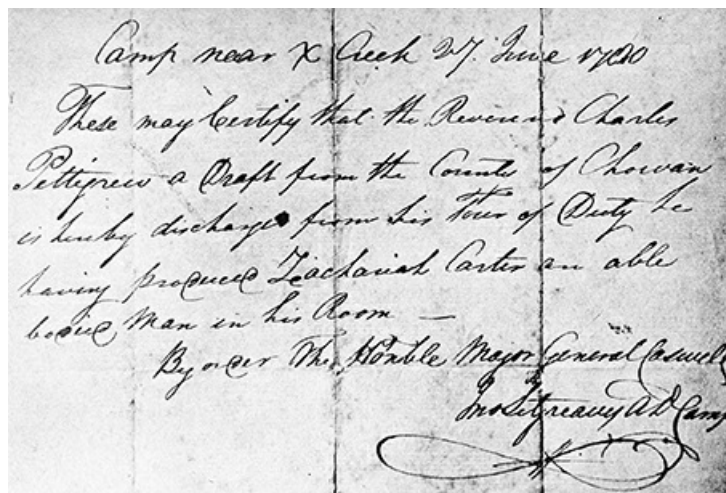 Camp near X Creek 27. June 1780
These may Certify that the Reverend Charles
Pettigrew a Draft from the County of Chowan
is hereby discharged from his Tour of Duty he
having produced Zachariah Carter an able
bodied Man in his Room —
By order The Honble Major General Caswell
Jno Sitgreaves A D Camp